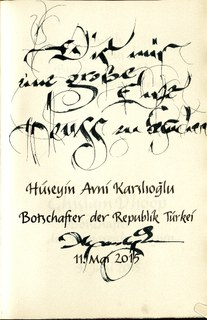 Es ist mir
eine große Ehre
zu
Hüseyin Avni Karslıoğlu
Botschafter der Republik Türkei
11. Mai 2015